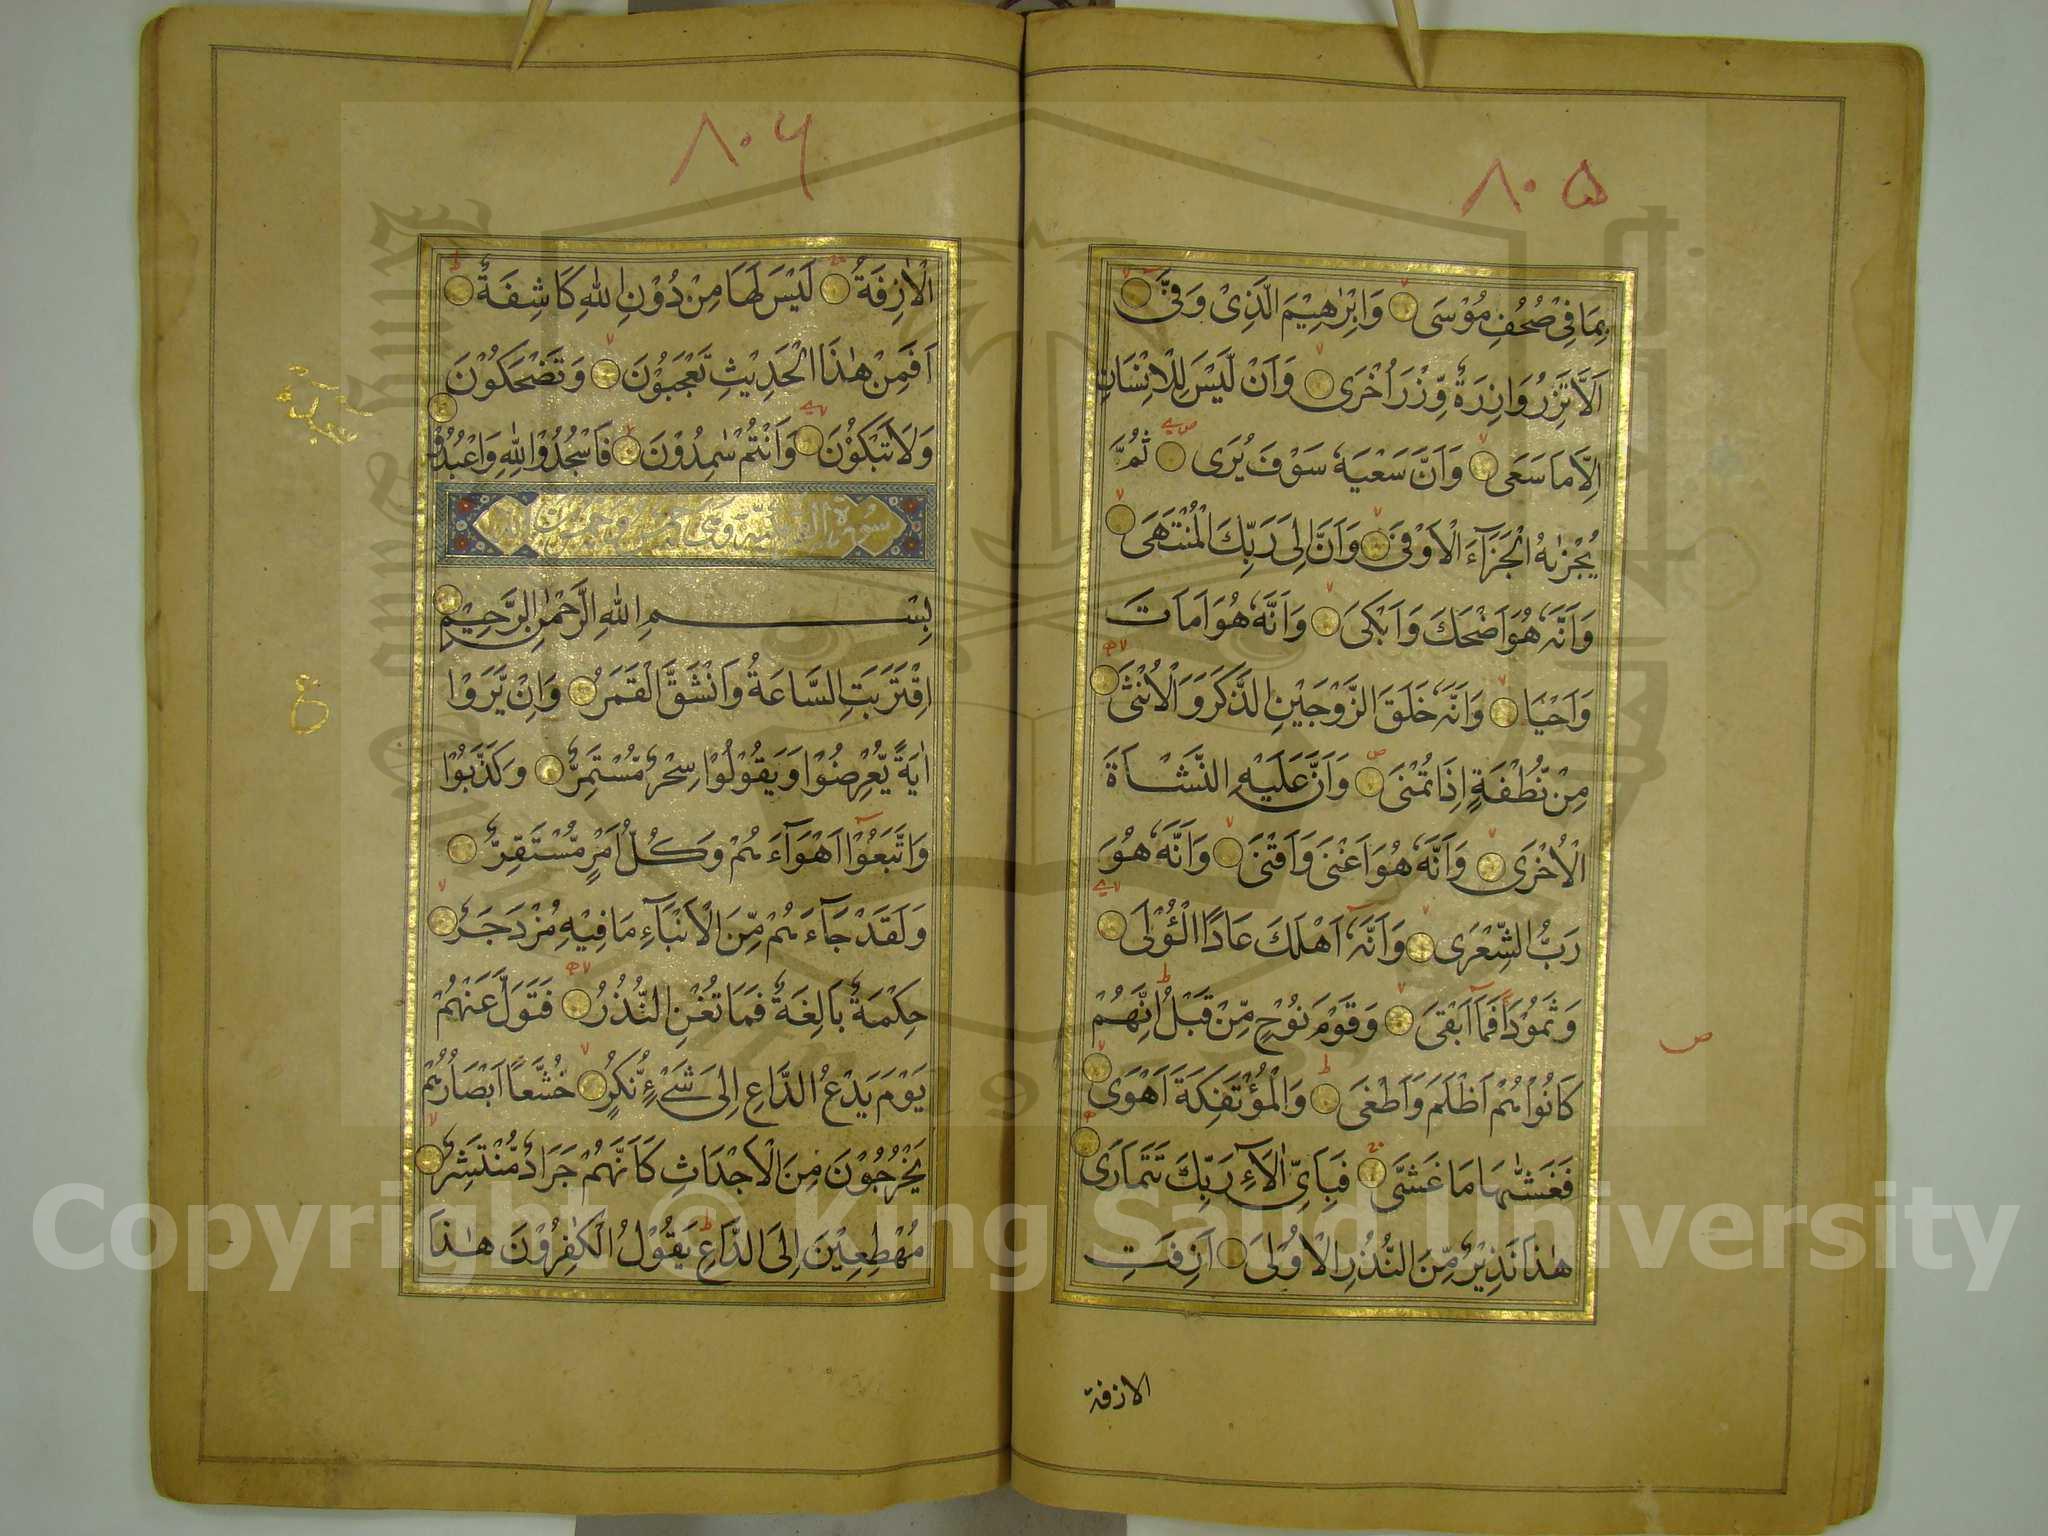 ٨٠٥
بِمَا فِيْ صُحُفِ مُوْسَى وَاِبْرٰهِيْمَ الَّذِيْ وَفّٰىٓ
اَلَّا تَزِرُ وَازِرَةٌ وِّزْرَ اُخْرَى وَاَنْ لَّيْسَ لِلْاِنْسَانِ
اِلَّا مَا سَعَى وَاَنَّ سَعْيَهٗ سَوْفَ يُرَى ثُمَّ
يُجْزٰىهُ الْجَزَآءَ الْاَوْفَىٰ وَاَنَّ اِلَى رَبِّكَ الْمُنْتَهَىٰ
وَاَنَّهٗ هُوَ اَضْحَكَ وَاَبْكَىٰ وَاَنَّهٗ هُوَ اَمَاتَ
وَاَحْيَا وَاَنَّهٗ خَلَقَ الزَّوْجَيْنِ الذَّكَرَ وَالْاُنْثَىٰ
مِنْ نُّطْفَةٍ اِذَا تُمْنَىٰ وَاَنَّ عَلَيْهِ النَّشْاَةَ
الْاُخْرَى وَاَنَّهٗ هُوَ اَغْنَىٰ وَاَقْنَىٰ وَاَنَّهٗ هُوَ
رَبُّ الشِّعْرَى وَاَنَّهٗٓ اَهْلَكَ عَادًا الْـُٔوْلَىٰ
وَثَمُوْدَا۟ فَمَآ اَبْقَىٰ وَقَوْمَ نُوْحٍ مِّنْ قَبْلُ اِنَّهُمْ
ص
كَانُوْا هُمْ اَظْلَمَ وَاَطْغَىٰ وَالْمُؤْتَفِكَةَ اَهْوَى
فَغَشّٰىهَا مَا غَشّٰى فَبِاَىِّ اٰلَآءِ رَبِّكَ تَتَمَارَى
هٰذَا نَذِيْرٌ مِّنَ النُّذُرِ الْاُوْلَىٰ اَزِفَتِ
الازفة
٨٠٦
الْاٰزِفَةُ لَيْسَ لَهَا مِنْ دُوْنِ اللّٰهِ كَاشِفَةٌ
اَفَمِنْ هٰذَا الْحَدِيْثِ تَعْجَبُوْنَ وَتَضْحَكُوْنَ
سجدة
وَلَا تَبْكُوْنَ وَاَنْتُمْ سٰمِدُوْنَ فَاسْجُدُوْا لِلّٰهِ وَاعْبُدُوْا
بِسْمِ اللّٰهِ الرَّحْمٰنِ الرَّحِيْمِ
اِقْتَرَبَتِ السَّاعَةُ وَانْشَقَّ الْقَمَرُ وَاِنْ يَّرَوْا
ع
اٰيَةً يُّعْرِضُوْا وَيَقُوْلُوْا سِحْرٌ مُّسْتَمِرٌّ وَكَذَّبُوْا
وَاتَّبَعُوْٓا اَهْوَآءَهُمْ وَكُلُّ اَمْرٍ مُّسْتَقِرٌّ
وَلَقَدْ جَآءَهُمْ مِّنَ الْاَنْبَآءِ مَا فِيْهِ مُزْدَجَرٌ
حِكْمَةٌ بَالِغَةٌ فَمَا تُغْنِ النُّذُرُ فَتَوَلَّ عَنْهُمْ
يَوْمَ يَدْعُ الدَّاعِ اِلَىٰ شَيْءٍ نُّكُرٍ خُشَّعًا اَبْصَارُهُمْ
يَخْرُجُوْنَ مِنَ الْاَجْدَاثِ كَاَنَّهُمْ جَرَادٌ مُّنْتَشِرٌ
مُهْطِعِيْنَ اِلَى الدَّاعِ يَقُوْلُ الْكٰفِرُوْنَ هٰذَا
Copyright © King Saud University